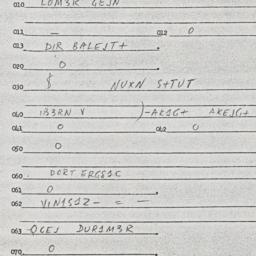 010 LOM3R GEJN
011 — 012 0
013 DIR BALEJT+
020 0
030 $ NUXN S+TUT
040 IB3RN Y )-AK1G+ AKEJG+
041 0 042 0
050 0
060 DORT ERGS1C
061 0
062 VIN1S1Z- = -
063 QCEJ DUR1M3R
070 0